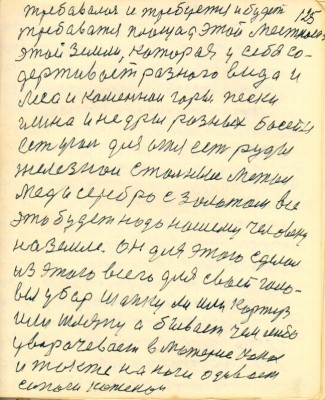 125
требавался и требуется и будет
требватся площад этой местности
этой земли, которая у себя со-
держивает разного вида и
леса и каменнаи горы пески
глина и недры разных басеты
ест угол для огня ест руды
железнаи стольные метал
мед и серебро с золотом все
это будет надо нашему человеку
на земле. он для этого сделал
из этого всего для своей голо-
вы убор шапку ли или картуз
или шляпу а бывает чем либо
уворачевает в материе
и тоже на ноги одевает
сапоги кожнаи